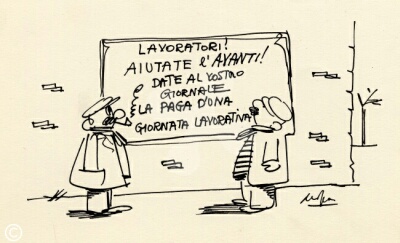 LAVORATORI!
AIUTATE l'AVANTI!
DATE AL VOSTRO
GIORNALE
LA PAGA D'UNA
GIORNATA LAVORATIVA
©